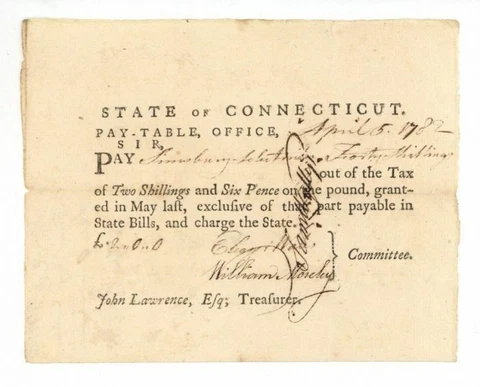 STATE OF CONNECTICUT.
PAY-TABLE, OFFICE, April 6. 1782
SIR,
PAY Simsbury Selectmen Forty Shillings
out of the Tax
of Two Shillings and Six Pence on the pound, grant-
ed in May last, exclusive of that part payable in
State Bills, and charge the State.
£.2..0..0
William Moseley
Committee.
John Lawrence, Esq; Treasurer.